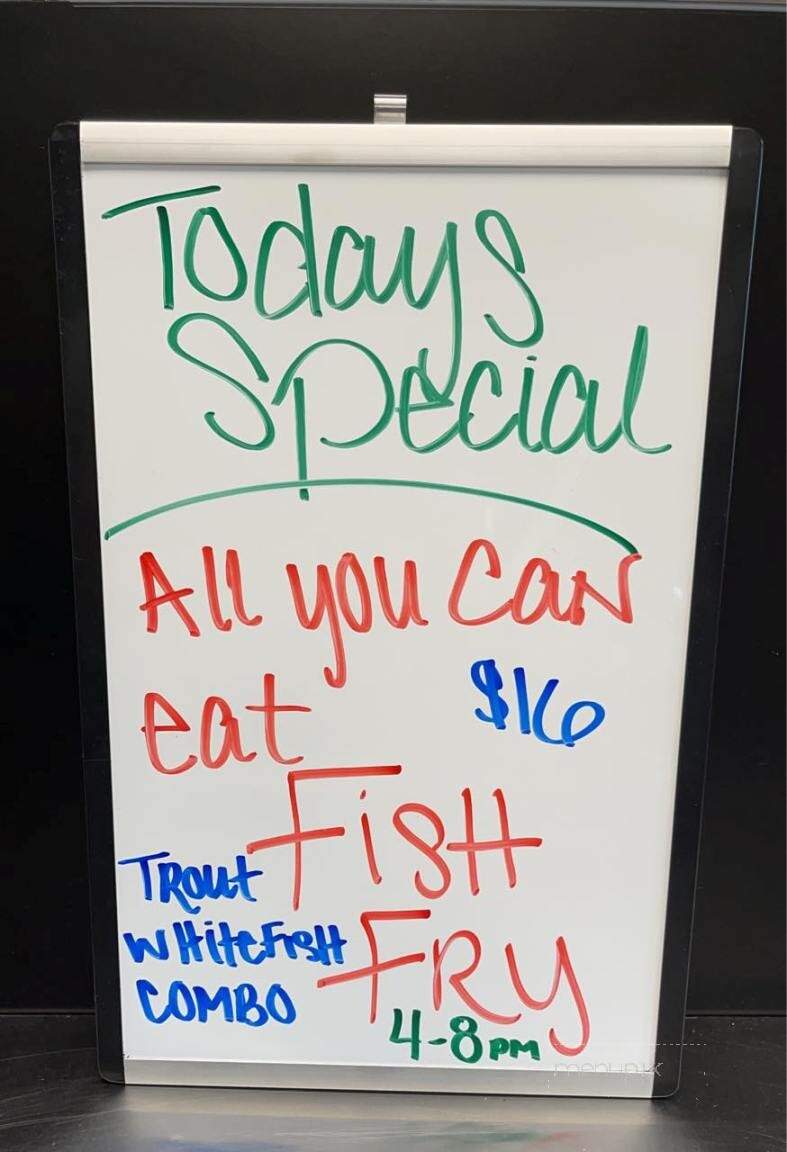 Todays
Special
All you can
eat $16
FisH
Trout
WHiteFisH
COMBO
FRy
4-8PM
menupix